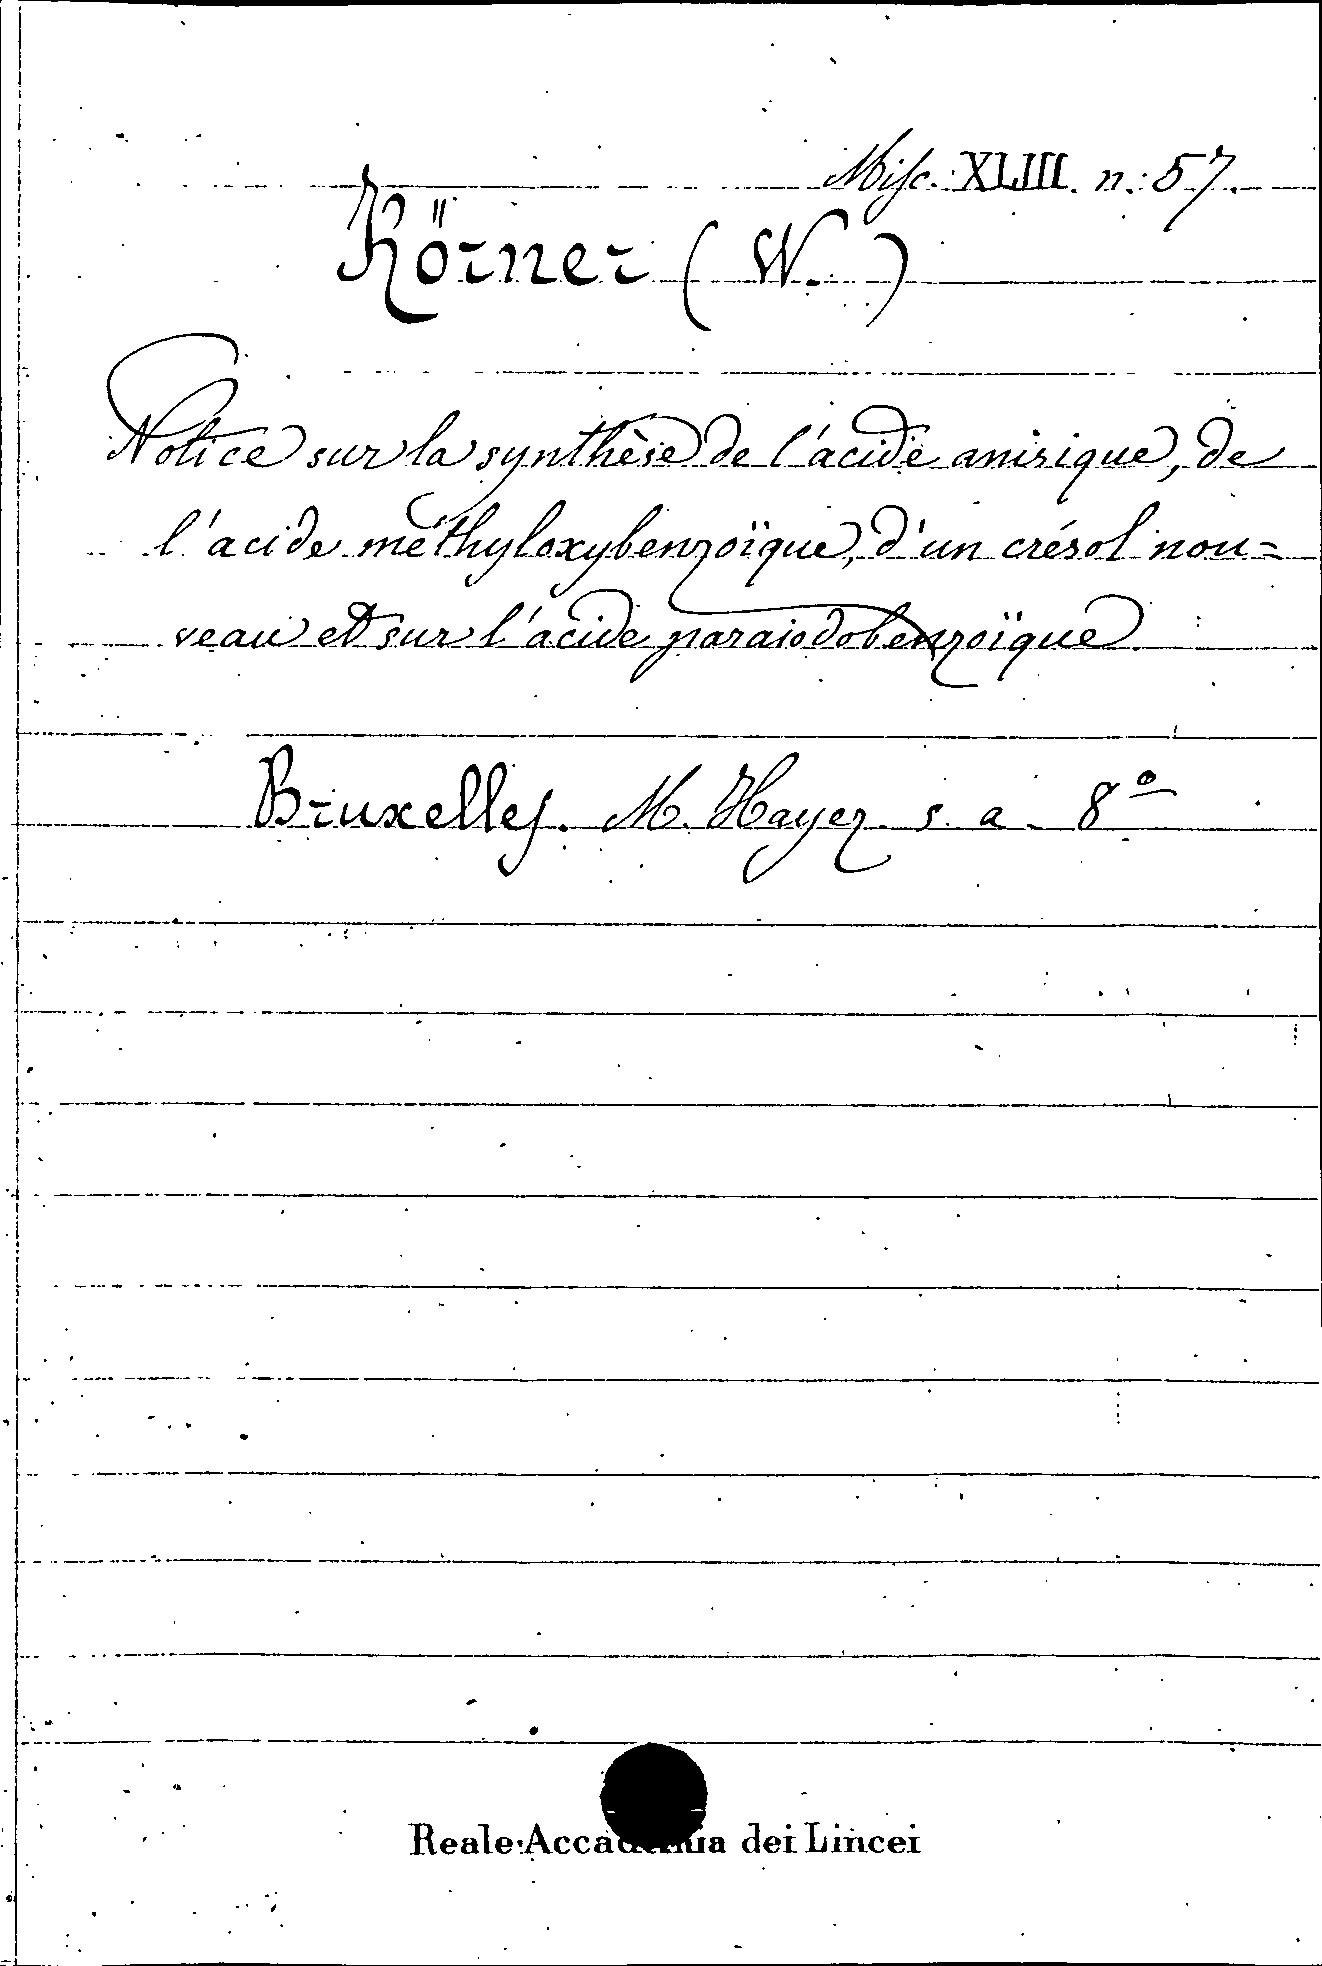 Misc. XLIII. n. 57.
Körner (W.)
Notice sur la synthèse de l'acide anisique, de
l'acide méthyloxybenzoïque, d'un crésol nou=
veau et sur l'acide paraiodobenzoïque.
Bruxelles. M. Hayez. s. a. 8º
Reale Accademia dei Lincei